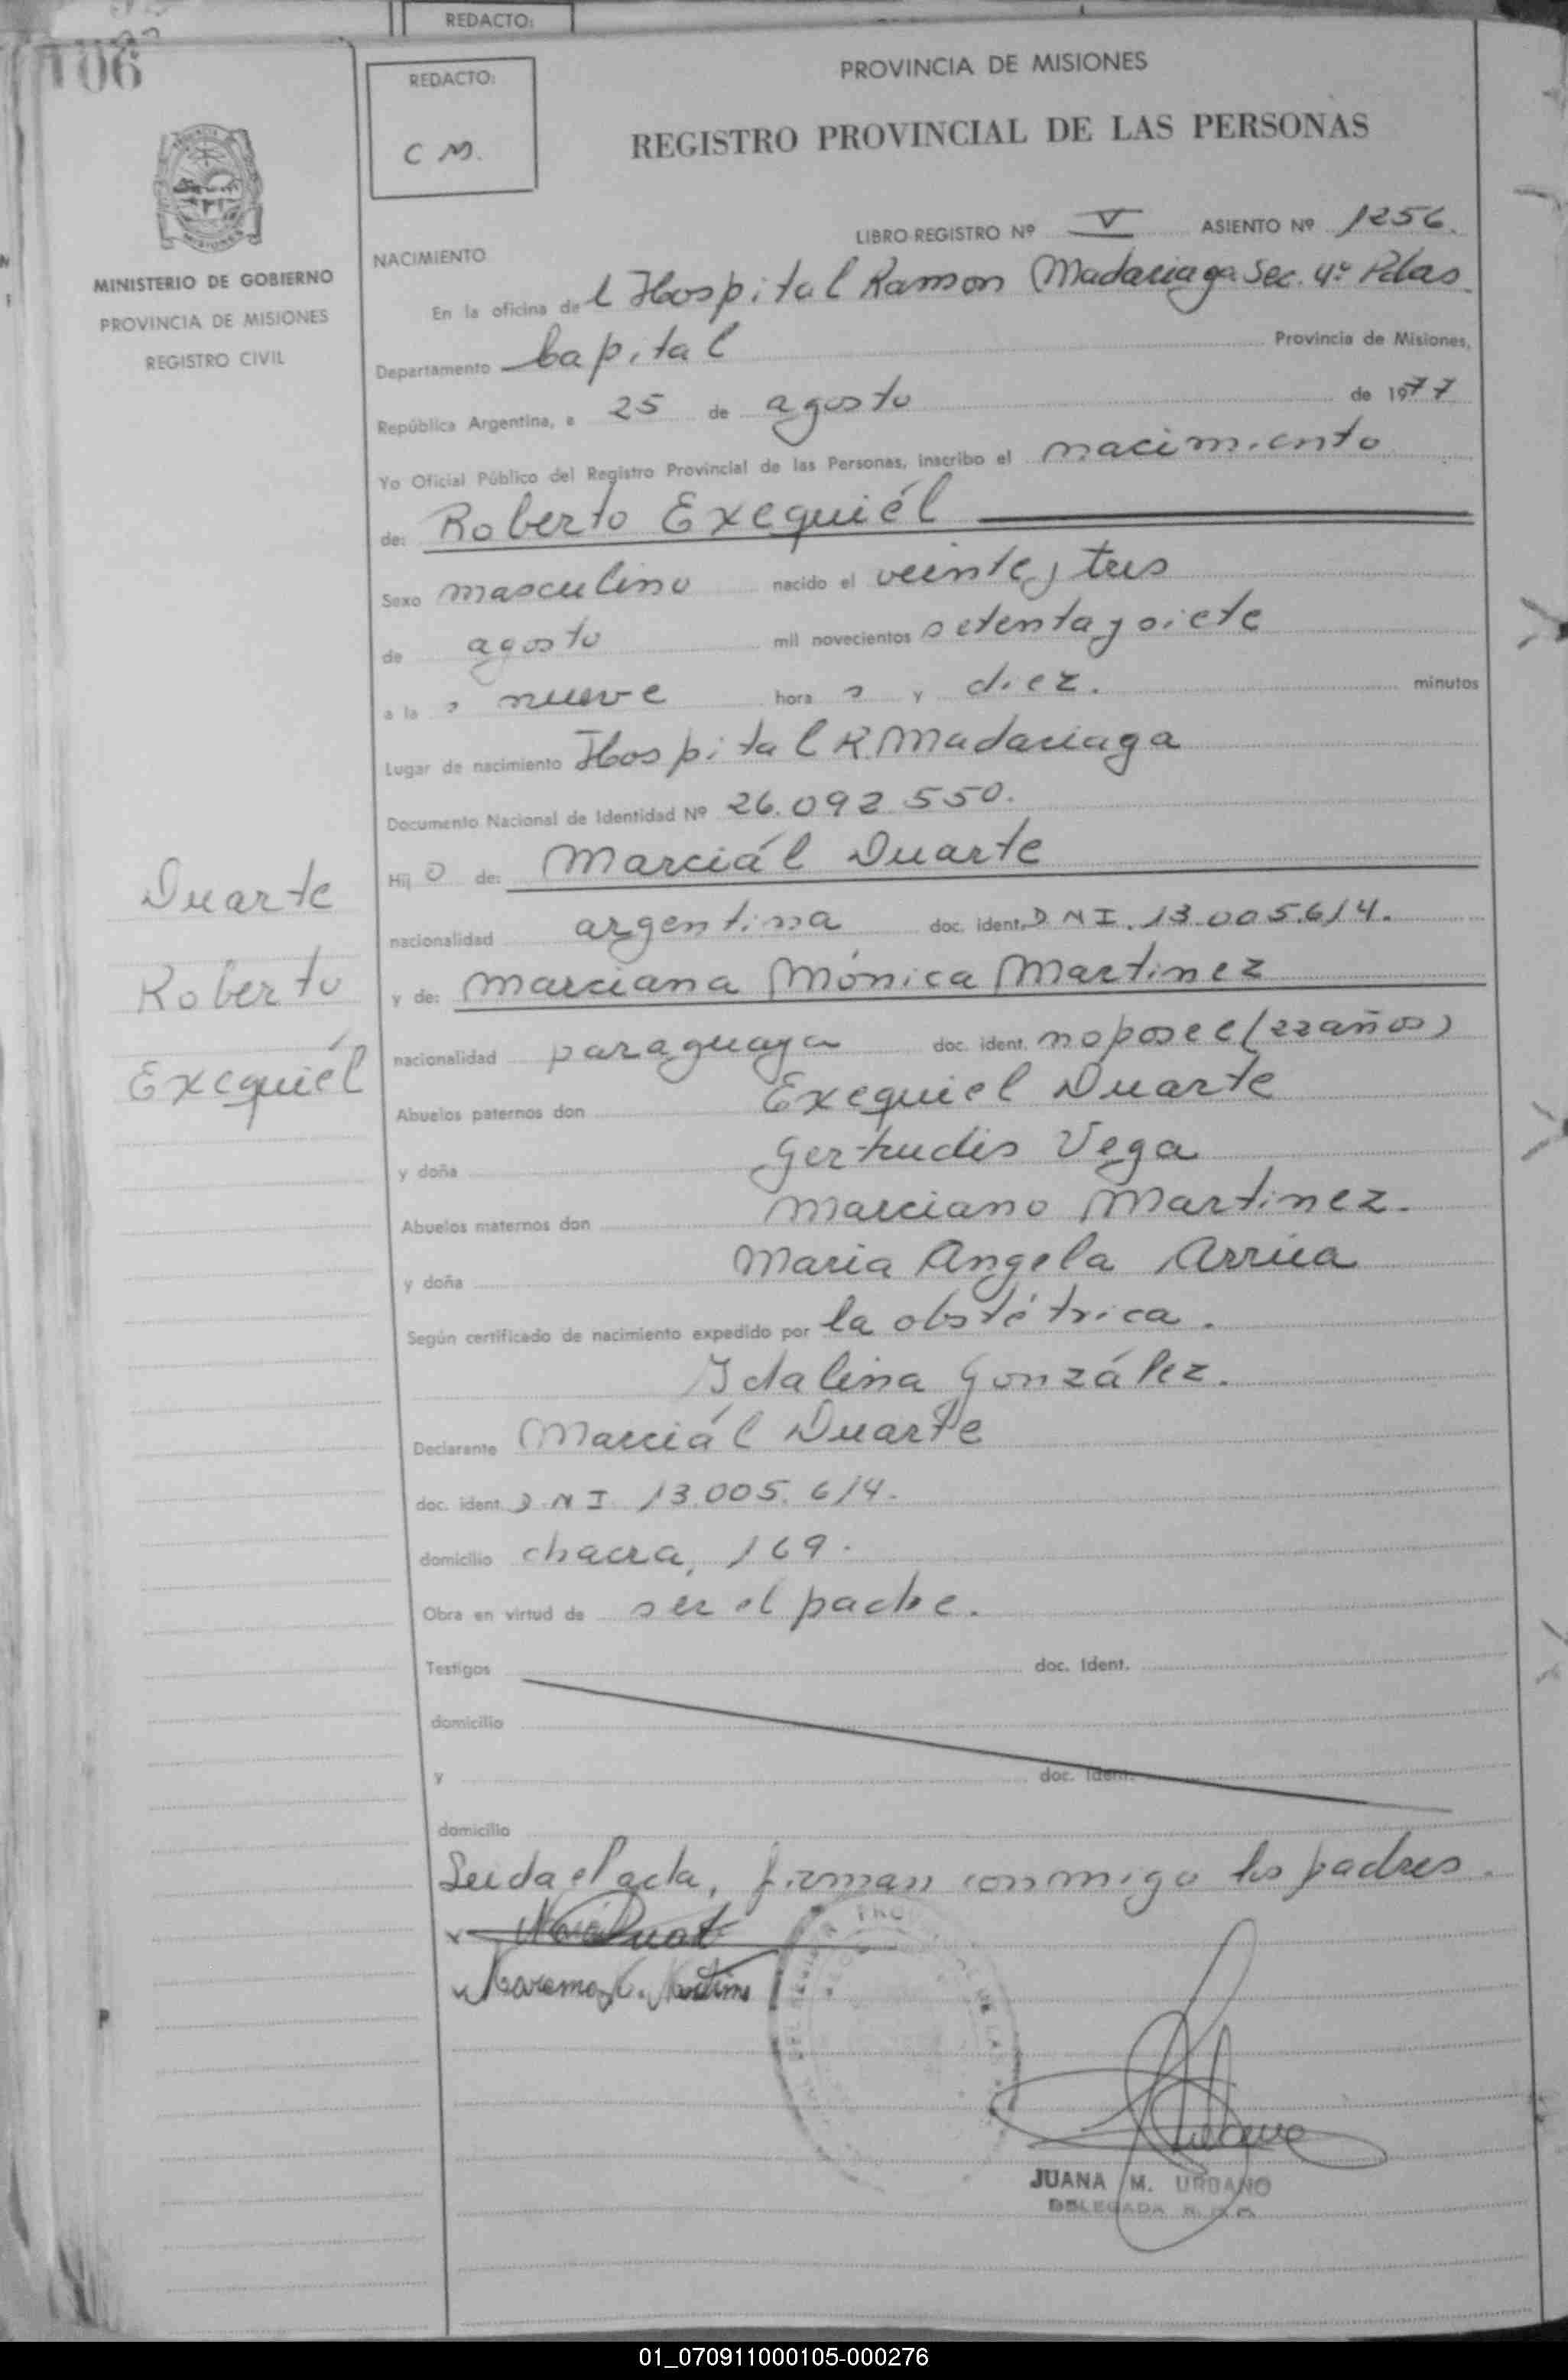 REDACTO:
106
REDACTO:
C M.
PROVINCIA DE MISIONES
REGISTRO PROVINCIAL DE LAS PERSONAS
MINISTERIO DE GOBIERNO
PROVINCIA DE MISIONES
REGISTRO CIVIL
LIBRO REGISTRO Nº V ASIENTO Nº 1256.
NACIMIENTO
En la oficina del Hospital Ramon Madariaga Sec. 4º Pdas
Departamento Capital Provincia de Misiones,
República Argentina, a 25 de agosto de 1977
Yo Oficial Público del Registro Provincial de las Personas, inscribo el nacimiento
de: Roberto Exequiél
Sexo masculino nacido el veinte y tres
de agosto mil novecientos setenta y siete
a la s nueve hora s y diez. minutos
Lugar de nacimiento Hospital R. Madariaga
Documento Nacional de Identidad Nº 26.092.550.
Hij o de: Marciál Duarte
nacionalidad argentina doc. ident. DNI. 13.005.614.
y de: Marciana Mónica Martinez
nacionalidad paraguaya doc. ident. no posee (22 años)
Abuelos paternos don Exequiel Duarte
y doña Gertrudis Vega
Abuelos maternos don Marciano Martinez.
y doña Maria Angela Arrua
Según certificado de nacimiento expedido por la obstétrica.
Idalina González.
Declarante Marciál Duarte
doc. ident. D.N.I. 13.005.614.
domicilio chacra, 169.
Obra en virtud de ser el padre.
Testigos doc. Ident.
domicilio
y doc. Ident.
domicilio
Leida el acta, firman conmigo los padres.
Duarte
Roberto
Exequiél
JUANA M. URBANO
DELEGADA
01_070911000105-000276